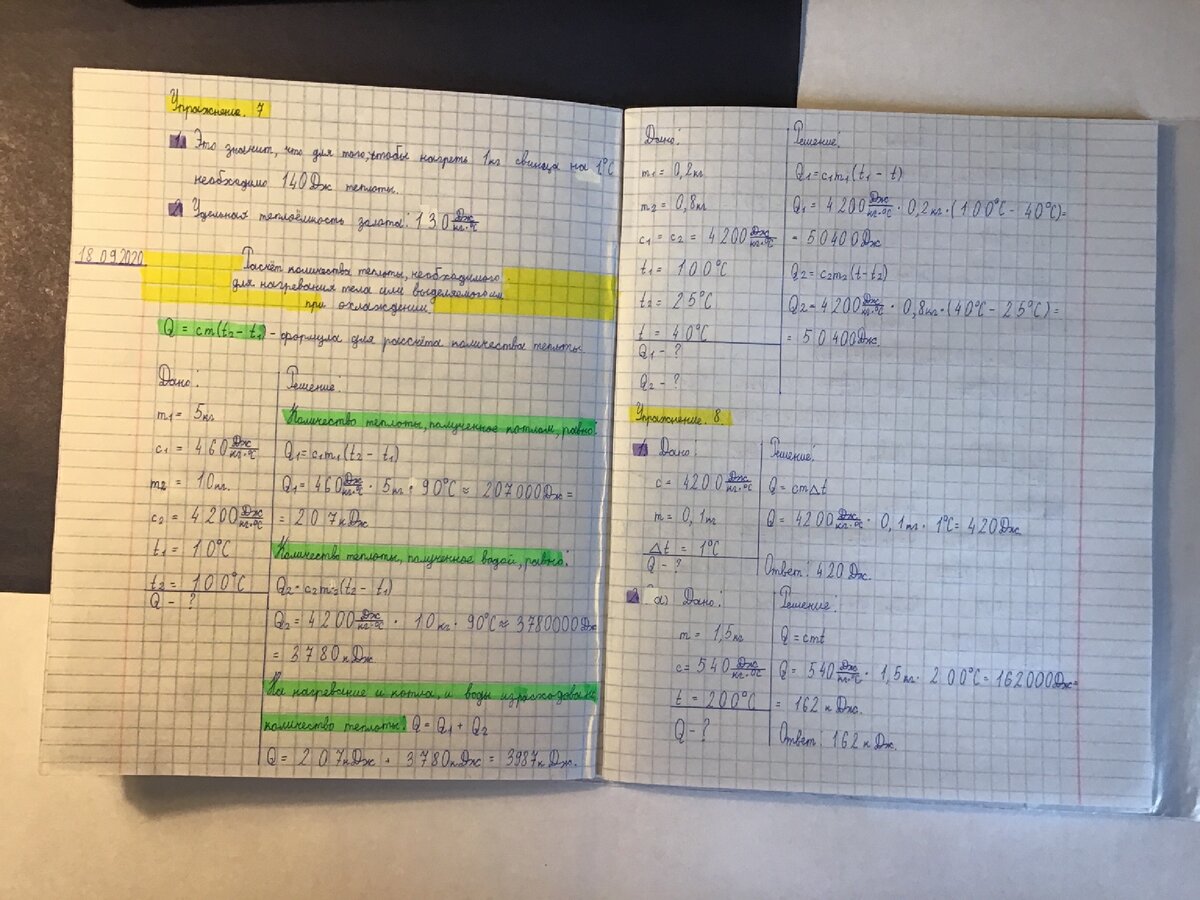 Упражнение. 7
1. Это значит, что для того, чтобы нагреть 1кг свинца на 1°С
необходимо 140Дж теплоты.
2. Удельная теплоёмкость золота: 130 Дж/кг·°С
18.09.2020
Расчёт количества теплоты, необходимого
для нагревания тела или выделяемого им
при охлаждении.
Q = cm(t₂ - t₁) - формула для рассчёта количества теплоты.
Дано:
m₁ = 5кг
c₁ = 460 Дж/кг·°С
m₂ = 10кг.
c₂ = 4200 Дж/кг·°С
t₁ = 10°С
t₂ = 100°С
Q - ?
Решение:
Количество теплоты, полученное котлом, равно:
Q₁=c₁m₁(t₂ - t₁)
Q₁= 460 Дж/кг·°С · 5кг · 90°С ≈ 207000Дж =
= 207кДж
Количество теплоты, полученное водой, равно:
Q₂= c₂m₂(t₂ - t₁)
Q₂= 4200 Дж/кг·°С · 10кг · 90°С ≈ 3780000Дж
= 3780кДж
На нагревание и котла, и воды израсходовали
количество теплоты: Q = Q₁ + Q₂
Q = 207кДж + 3780кДж = 3987кДж.
Дано:
m₁ = 0,2кг
m₂ = 0,8кг
c₁ = c₂ = 4200 Дж/кг·°С
t₁ = 100°С
t₂ = 25°С
t = 40°С
Q₁ - ?
Q₂ - ?
Решение:
Q₁=c₁m₁(t₁ - t)
Q₁ = 4200 Дж/кг·°С · 0,2кг · (100°С - 40°С)=
= 50400Дж
Q₂=c₂m₂(t-t₂)
Q₂= 4200 Дж/кг·°С · 0,8кг·(40°С - 25°С)=
= 50400Дж.
Упражнение. 8.
1. Дано:
c = 4200 Дж/кг·°С
m = 0,1кг
Δt = 1°С
Q - ?
Решение:
Q = cmΔt
Q = 4200 Дж/кг·°С · 0,1кг · 1°С = 420Дж
Ответ: 420Дж.
2. а) Дано:
m = 1,5кг
c = 540 Дж/кг·°С
t = 200°С
Q - ?
Решение:
Q = cmt
Q = 540 Дж/кг·°С · 1,5кг · 200°С = 162000Дж=
= 162кДж.
Ответ: 162кДж.